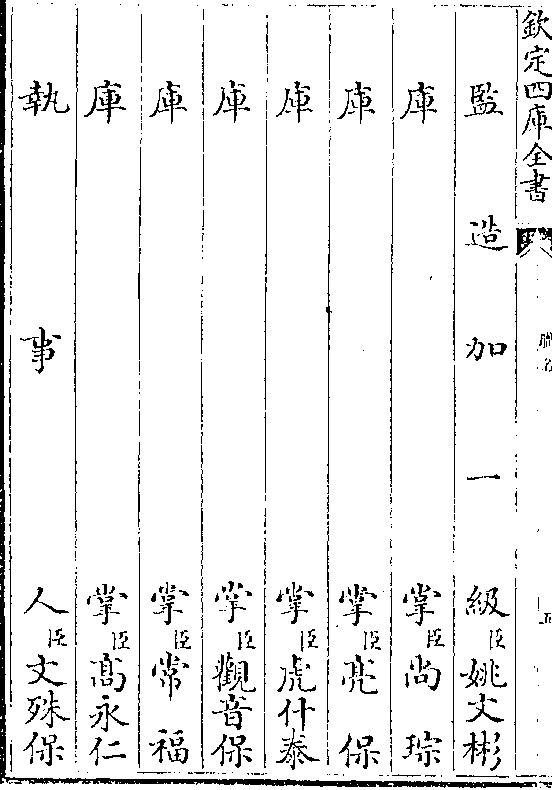 欽定四庫全書
職名
監造加一級臣姚文彬
庫掌臣尚琮
庫掌臣亮保
庫掌臣虎什泰
庫掌臣觀音保
庫掌臣常福
庫掌臣高永仁
執事人臣文殊保